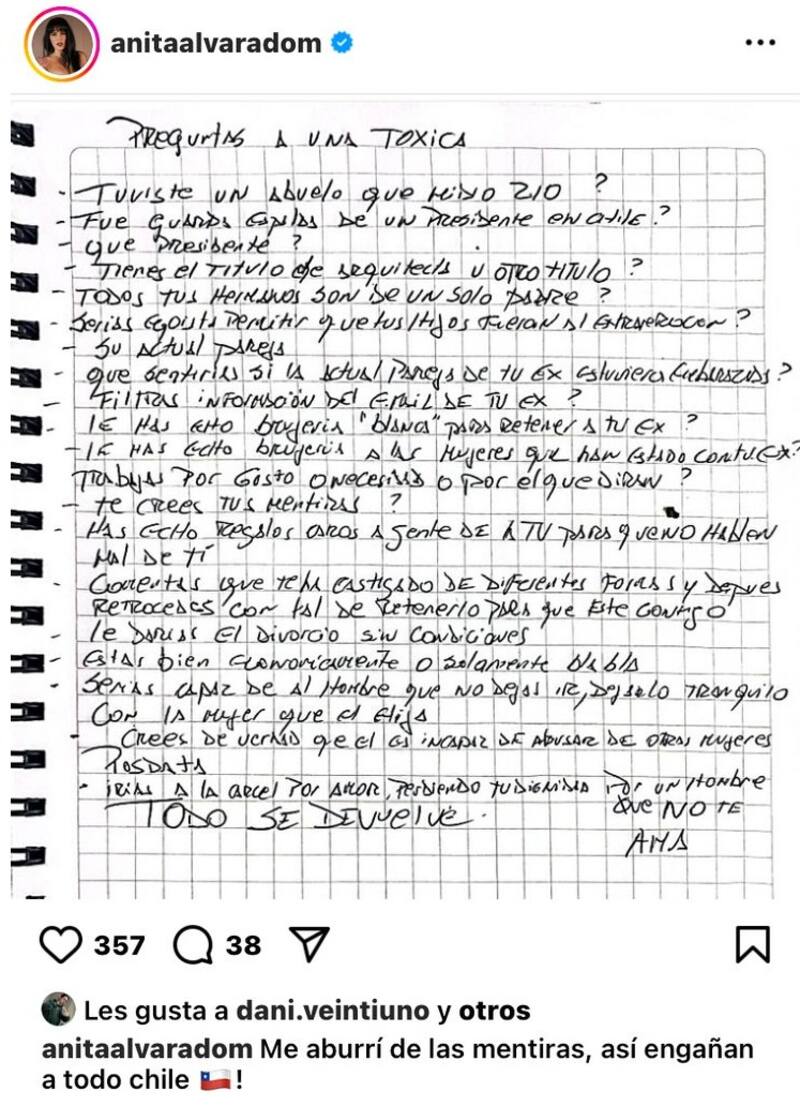 anitaalvaradom
PREGUNTAS A UNA TOXICA
- TUVISTE UN ABUELO que MIDIO 210 ?
- FUE GUARDA ESPALDAS DE UN PRESIDENTE EN CHILE ?
- QUE PRESIDENTE ?
- TIENES el TITULO de arquitecta U OTRO TITULO ?
- TODOS TUS HERMANOS SON DE UN SOLO PADRE ?
- SERIAS EGOISTA PERMITIR QUE TUS HIJOS FUERAN AL EXTRANJERO CON ?
- SU ACTUAL PAREJA
- QUE SENTIRIAS SI LA ACTUAL PAREJA DE TU EX ESTUVIERA EMBARAZADA ?
- FILTRAS INFORMACIÓN DEL EMAIL DE TU EX ?
- LE HAS ECHO brujeria "blanca" PARA RETENER A TU EX ?
- LE HAS ECHO brujeria A LAS MUJERES QUE HAN ESTADO CON TU EX?
TRABAJAS POR GUSTO O NECESIDAD O POR el QUE DIRAN ?
- te CREES TUS MENTIRAS ?
- HAS ECHO REGALOS CAROS A gente DE TU PARA QUE NO HABLEN
MAL DE TÍ
- QUE TE HA CASTIGADO DE DIFERENTES FORMAS Y DEPUES
RETROCEDES CON TAL DE RETENERLO PARA QUE ESTE CONTIGO
- le DARIAS El DIVORCIO SIN CONDICIONES
- ESTAS bien ECONOMICAMENTE O SOLAMENTE BLA BLA
- SERIAS CAPAZ DE AL HOMBRE QUE NO DEJAS IR, DEJARLO TRANQUILO
CON LA MUJER QUE el ELIJA
- CREES DE VERDAD QE EL ES INCAPAZ DE ABUSAR DE OTRAS MUJERES
POSDATA
- IRIAS A LA CARCEL POR AMOR, PERDIENDO TU DIGNIDAD POR UN HOMBRE
QUE NO TE
AMA
TODO SE DEVUELVE.
357 38
Les gusta a dani.veintiuno y otros
anitaalvaradom Me aburrí de las mentiras, así engañan
a todo chile 🇨🇱!